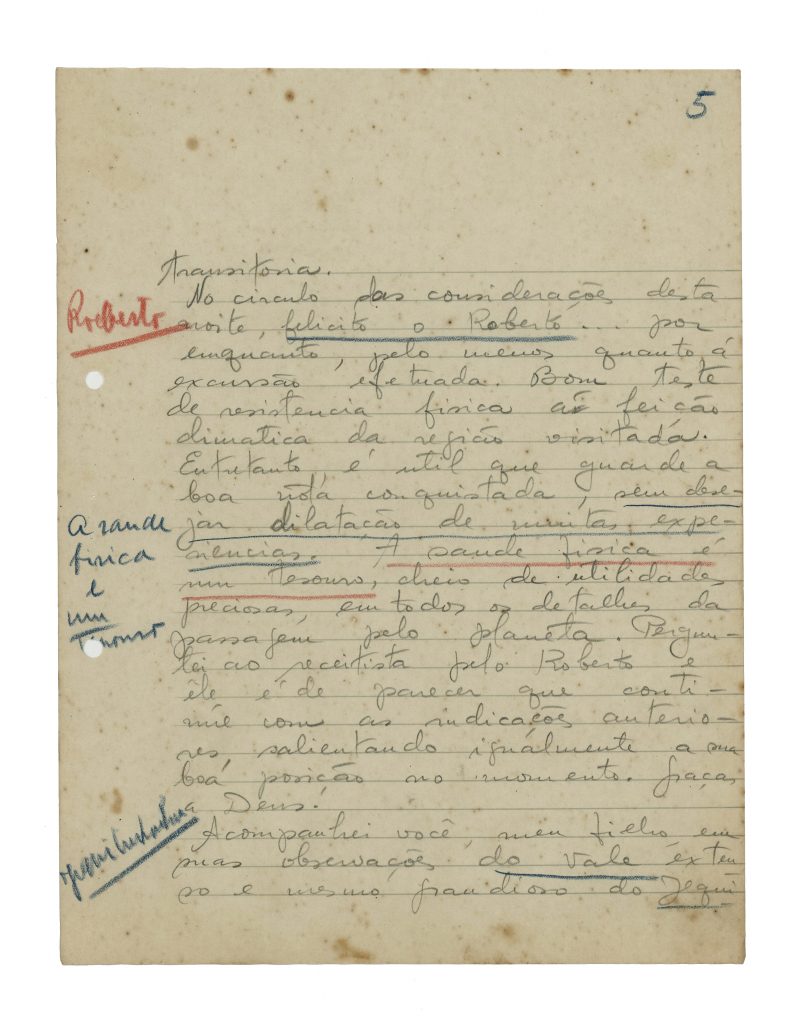 5
transitoria.
No circulo das considerações desta
Roberto
noite, felicito o Roberto... por
emquanto, pelo menos quanto á
excursão efetuada. Bom teste
de resistencia fisica á feição
climatica da região visitada.
Entretanto, é util que guarde a
boa nota conquistada, sem dese-
jar dilatação de muitas expe-
riencias. A saude fisica é
um tesouro, cheio de utilidades
preciosas, em todos os detalhes da
passagem pelo planeta. Pergun-
tei ao receitista pelo Roberto e
êle é de parecer que conti-
núe com as indicações anterio-
res, salientando igualmente a sua
boa posição no momento. Graças
a Deus!
A saude
fisica
é
um
Tesouro
Acompanhei você, meu filho, em
suas observações do Vale exten
so e mesmo grandioso do Jequi